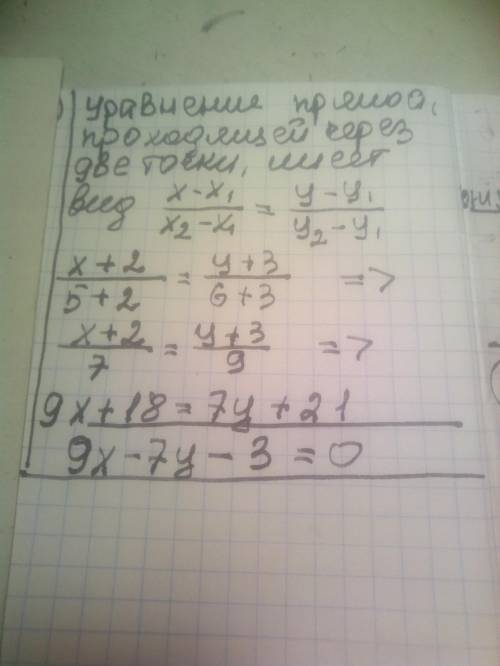 уравнение прямой,
проходящей через
две точки, имеет
вид x-x₁/x₂-x₁ = y-y₁/y₂-y₁
x+2/5+2 = y+3/6+3 =>
x+2/7 = y+3/9 =>
9x+18=7y+21
9x-7y-3=0